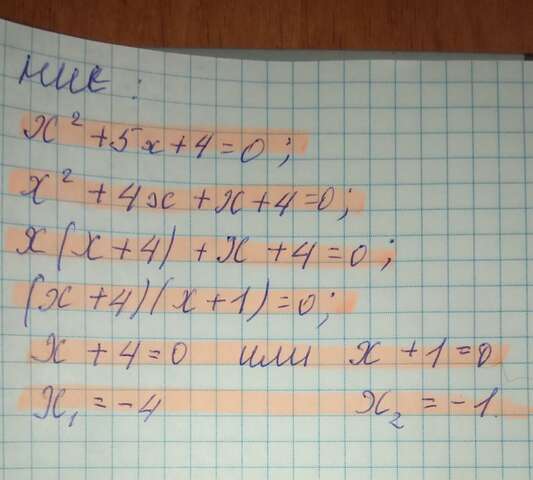 ник:
x² + 5x + 4 = 0;
x² + 4x + x + 4 = 0;
x(x + 4) + x + 4 = 0;
(x + 4)(x + 1) = 0;
x + 4 = 0 или x + 1 = 0
x₁ = -4 x₂ = -1.